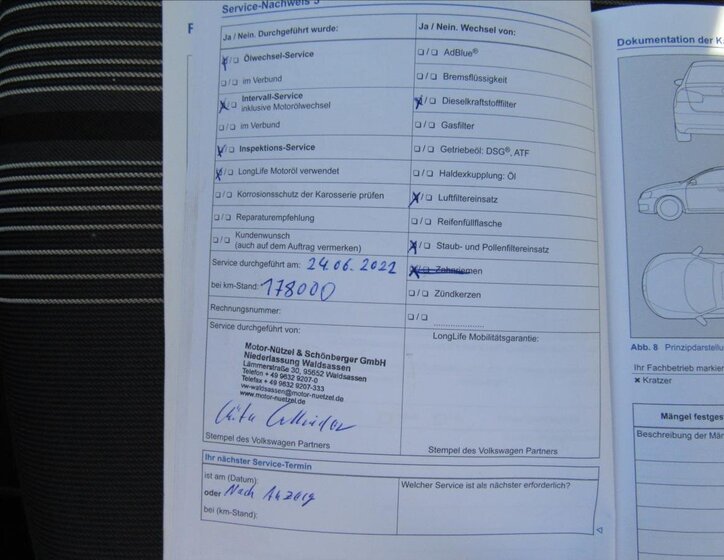 Service-Nachweis 5
Ja / Nein. Durchgeführt wurde:
☒/❑ Ölwechsel-Service
❑/❑ im Verbund
☒/❑ Intervall-Service
inklusive Motorölwechsel
❑/❑ im Verbund
☒/❑ Inspektions-Service
☒/❑ LongLife Motoröl verwendet
❑/❑ Korrosionsschutz der Karosserie prüfen
❑/❑ Reparaturempfehlung
❑/❑ Kundenwunsch
(auch auf dem Auftrag vermerken)
Service durchgeführt am: 24.06.2021
bei km-Stand: 178000
Rechnungsnummer:
Service durchgeführt von:
Motor-Nützel & Schönberger GmbH
Niederlassung Waldsassen
Lämmerstraße 30, 95652 Waldsassen
Telefon + 49 9632 9207-0
Telefax + 49 9632 9207-333
vw-waldsassen@motor-nuetzel.de
www.motor-nuetzel.de
Stempel des Volkswagen Partners
Ja / Nein. Wechsel von:
❑/❑ AdBlue®
❑/❑ Bremsflüssigkeit
☒/❑ Dieselkraftstofffilter
❑/❑ Gasfilter
❑/❑ Getriebeöl: DSG®, ATF
❑/❑ Haldexkupplung: Öl
☒/❑ Luftfiltereinsatz
❑/❑ Reifenfüllflasche
☒/❑ Staub- und Pollenfiltereinsatz
☒/❑ Zahnriemen
❑/❑ Zündkerzen
❑/❑ ......................
LongLife Mobilitätsgarantie:
Stempel des Volkswagen Partners
Ihr nächster Service-Termin
ist am (Datum):
oder Nach Anzeig
bei (km-Stand):
Welcher Service ist als nächster erforderlich?
F
Dokumentation der Ka
Abb. 8 Prinzipdarstellu
Ihr Fachbetrieb markier
✖ Kratzer
Mängel festges
Beschreibung der Män